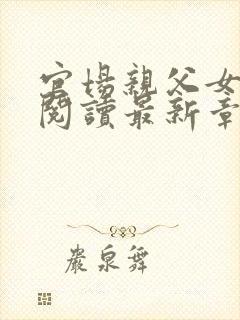 官場親父女
閱讀最新章
巖泉舞